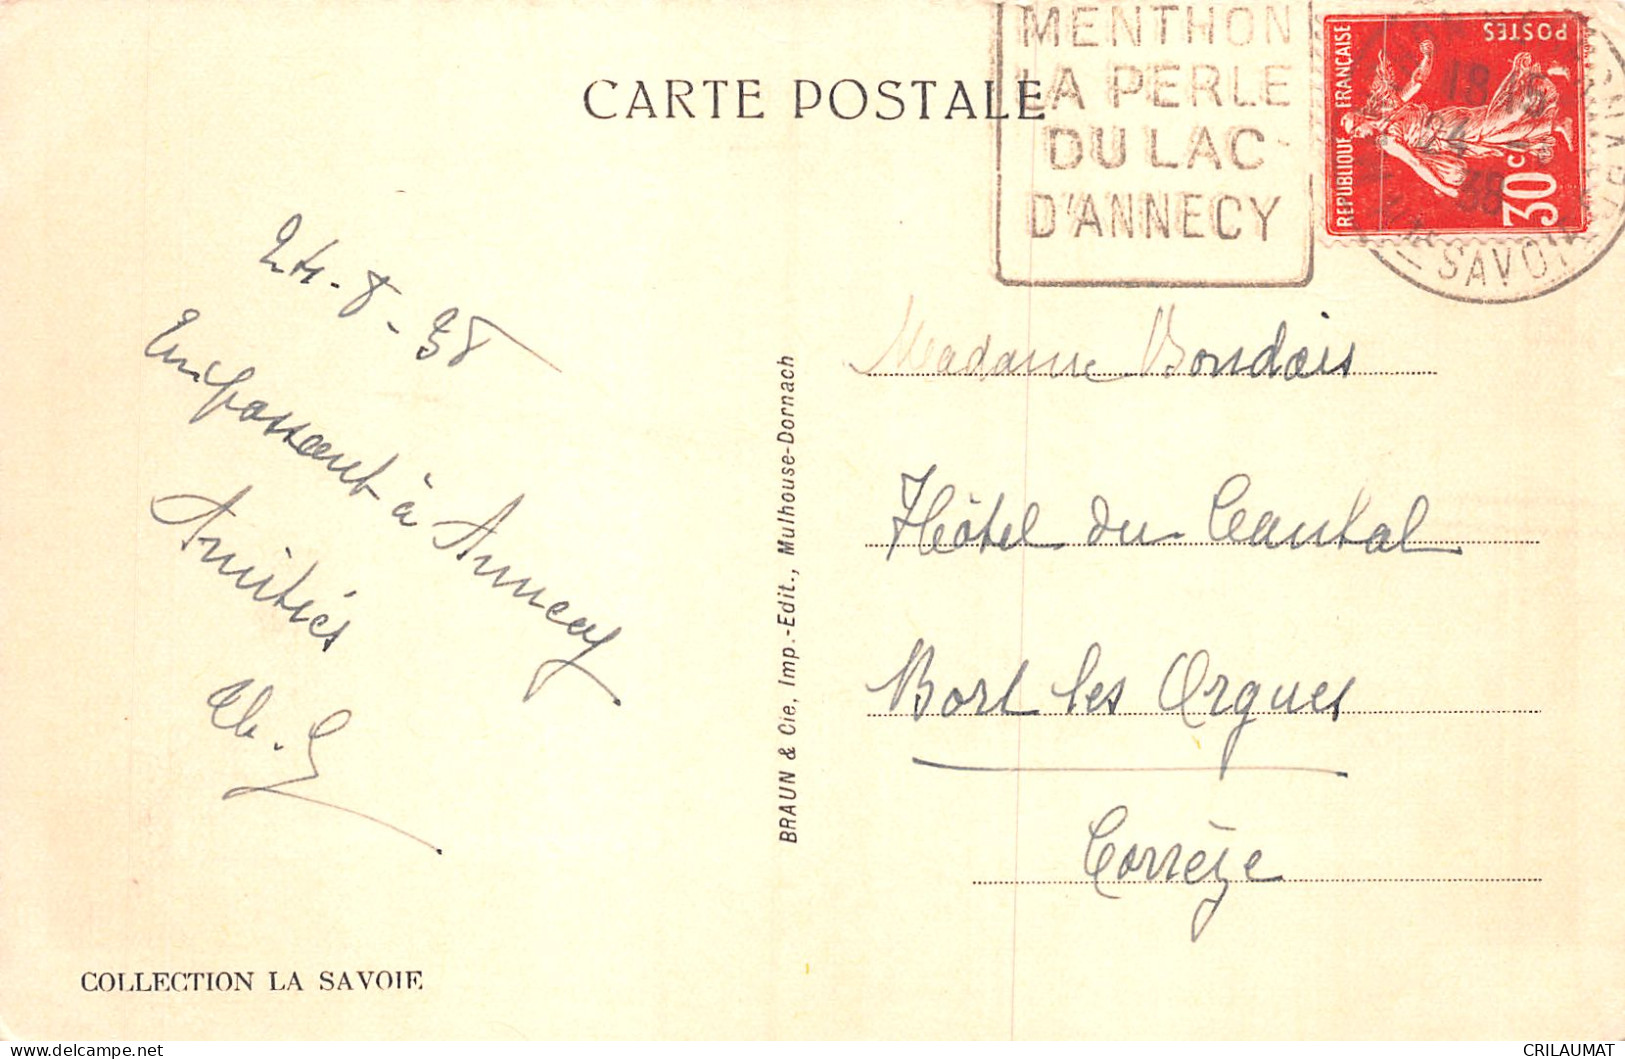 CARTE POSTALE
MENTHON
LA PERLE
DU LAC
D'ANNECY
REPUBLIQUE FRANÇAISE
POSTES
30 c
18 15
24
38
SAVOIE
24-8-38
En passant à Annecy
Amitiés
BRAUN & Cie, Imp.-Edit., Mulhouse-Dornach
Madame Bondois
Hôtel du Cantal
Bort les Orgues
Corrèze
COLLECTION LA SAVOIE
CRILAUMAT